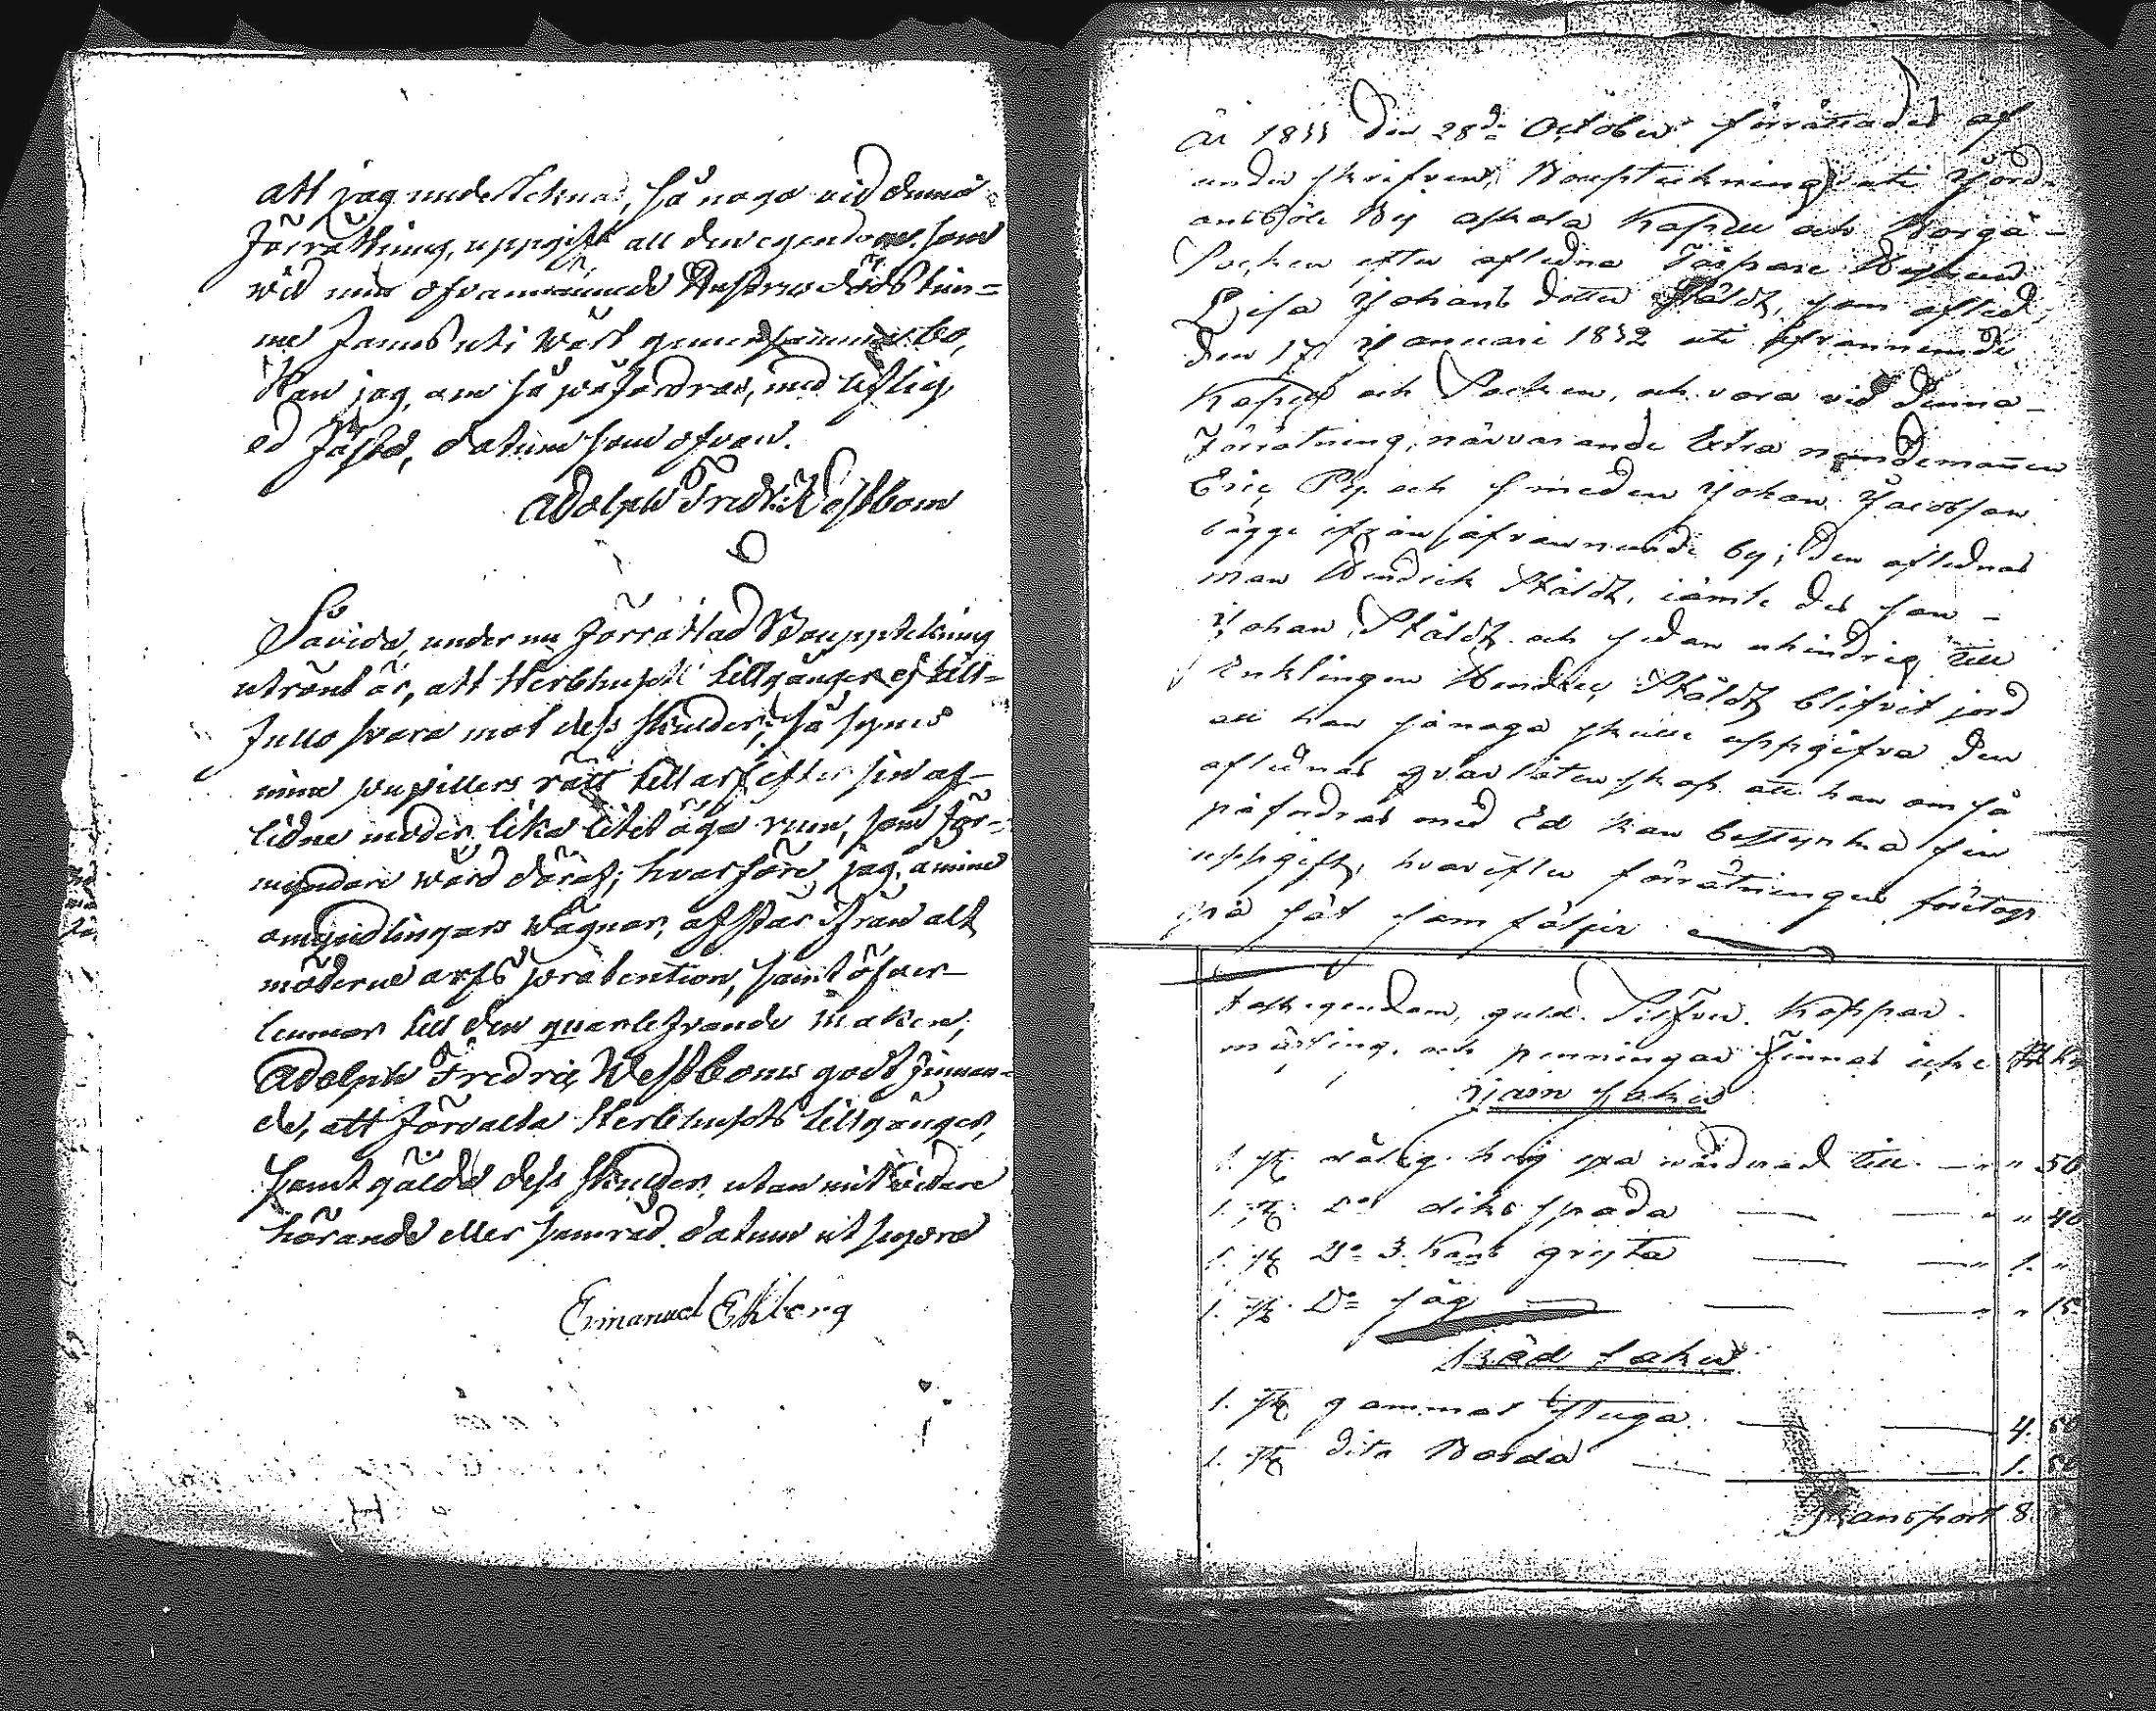 att jag undertecknad, så noga vid denna
förrättning, uppgifit all den egendom, som
wid min ofvannämnde Hustrus dödstim=
me fanns uti wårt gemensamma bo,
Kan jag, om så påfordras, med liflig
ed fästa, datum som ofvan.
Adolph Fredr: Westbom
Såvida, under nu förrättad Bouppteckning
utrönt är, att Sterbhusets tillgångar ej till=
fullo svara mot dess skulder; så synes
mine pupillers rätt till arf efter sin af-
lidne moder, lika litet äga rum, som för-
myndare wård däraf; hvarföre jag, å mine
omyndlingars wägnar, afstår ifrån alt
möderne arfs prætention, samt öfver-
lemnar till den quarlefvande maken,
Adolph Fredric Westboms godtfinnan=
de, att förvalta Sterbhusets tillgångar,
samt gälda dess skulder, utan mit vidare
hörande eller samråd. datum ut supra
Emanuel Ekberg
År 1833 den 28de October förrättades af
under skrifven, Bouptekning uti Hjord
ansböle By Askola Kapell och Borgå-
Socken efter aflidna Torpare Hustrun
Lisa Johans dotter Ståldt, som afled,
den 17 Januari 1832 uti åfvannemde
Kapell och Socken, och vora vid denna-
Förrätning, närvarande Extra nämdemannen
Eric Pg och smeden Johan Jacobsson
bägge ifrån åfvannemde by; den aflednas
man Hendrik Ståldt, iämte des son-
Johan Ståldt och sedan erhindrig till
Enklingen Hendric Ståldt blifvit jord
att han så noga skulle uppgifva den
aflednas qvarlåtenskap att han om så
påfodras med Ed kan bestyrka sin
uppgift, hvarefter förrätningen företogs
på sät som fölljer
fastegendom, guld. Silfver. Koppar.
mässing, och penningar finnas icke
Järn saker
1. st. dålig hög yxa wärderad till — " " 50
1. st. Do dikes spada — " " 40
1. st. Do 3. Kants gryta — " 1. "
1. st. Do såg — " " 15
Träd saker
1. st. gammal stuga — 4. 50
1. st. dito Borda — 1. 50
Transport 8.